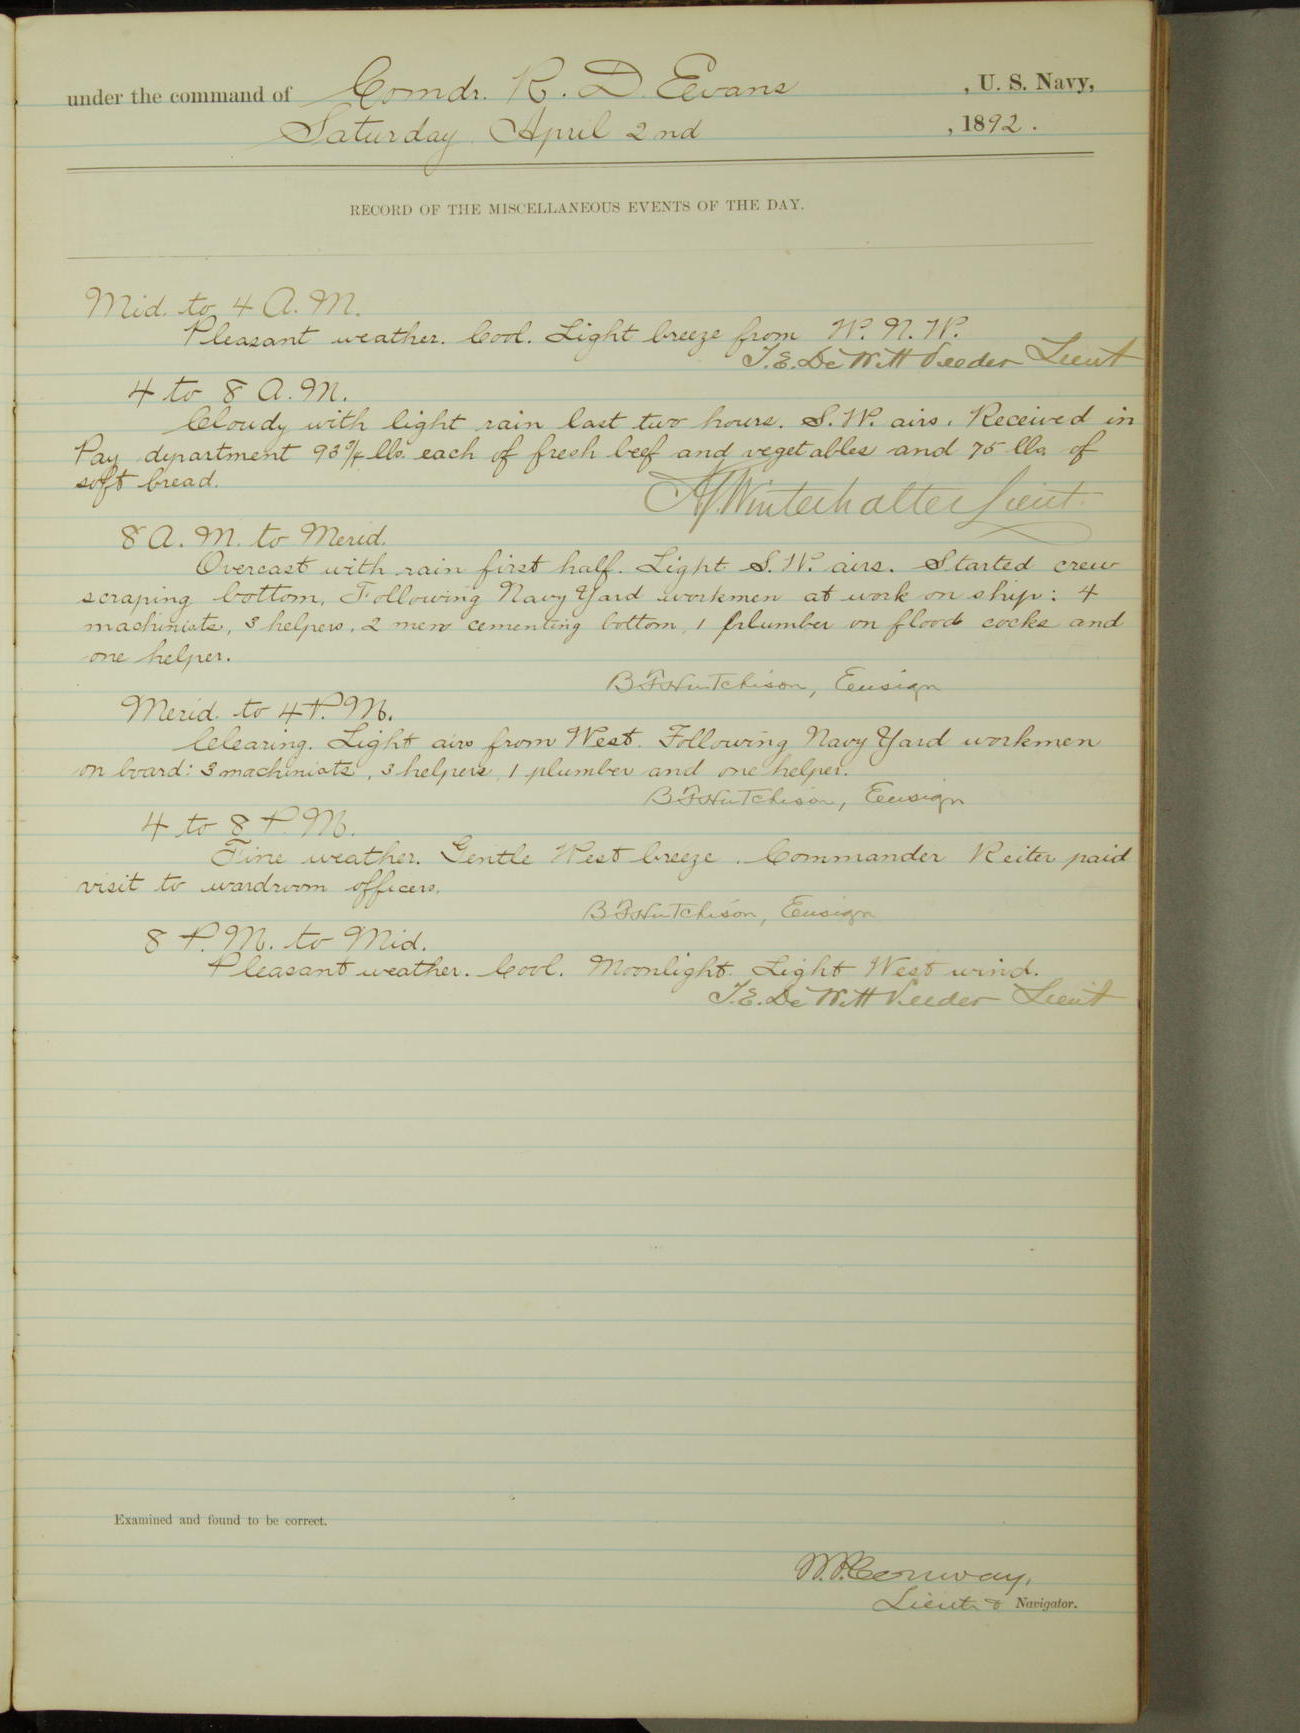 under the command of Comdr. R. D. Evans, U. S. Navy,
Saturday April 2nd, 1892.
RECORD OF THE MISCELLANEOUS EVENTS OF THE DAY.
Mid. to 4 A. M.
Pleasant weather. Cool. Light breeze from W. N. W.
T. E. De Witt Veeder Lieut
4 to 8 A. M.
Cloudy with light rain last two hours. S. W. airs. Received in
Pay department 93 3/4 lbs. each of fresh beef and vegetables and 75 lbs of
soft bread.
A. Winterhalter Lieut.
8 A. M. to Merid.
Overcast with rain first half. Light S. W. airs. Started crew
scraping bottom. Following Navy Yard workmen at work on ship: 4
machinists, 3 helpers, 2 men cementing bottom, 1 plumber on flood cocks and
one helper.
B F Hutchison, Ensign
Merid. to 4 P. M.
Clearing. Light airs from West. Following Navy Yard workmen
on board: 3 machinists, 3 helpers, 1 plumber and one helper.
B F Hutchison, Ensign
4 to 8 P. M.
Fine weather. Gentle West breeze. Commander Reiter paid
visit to wardroom officers.
B F Hutchison, Ensign
8 P. M. to Mid.
Pleasant weather. Cool. Moonlight. Light West wind.
T. E. De Witt Veeder Lieut
Examined and found to be correct.
W. P. Conway,
Lieut & Navigator.